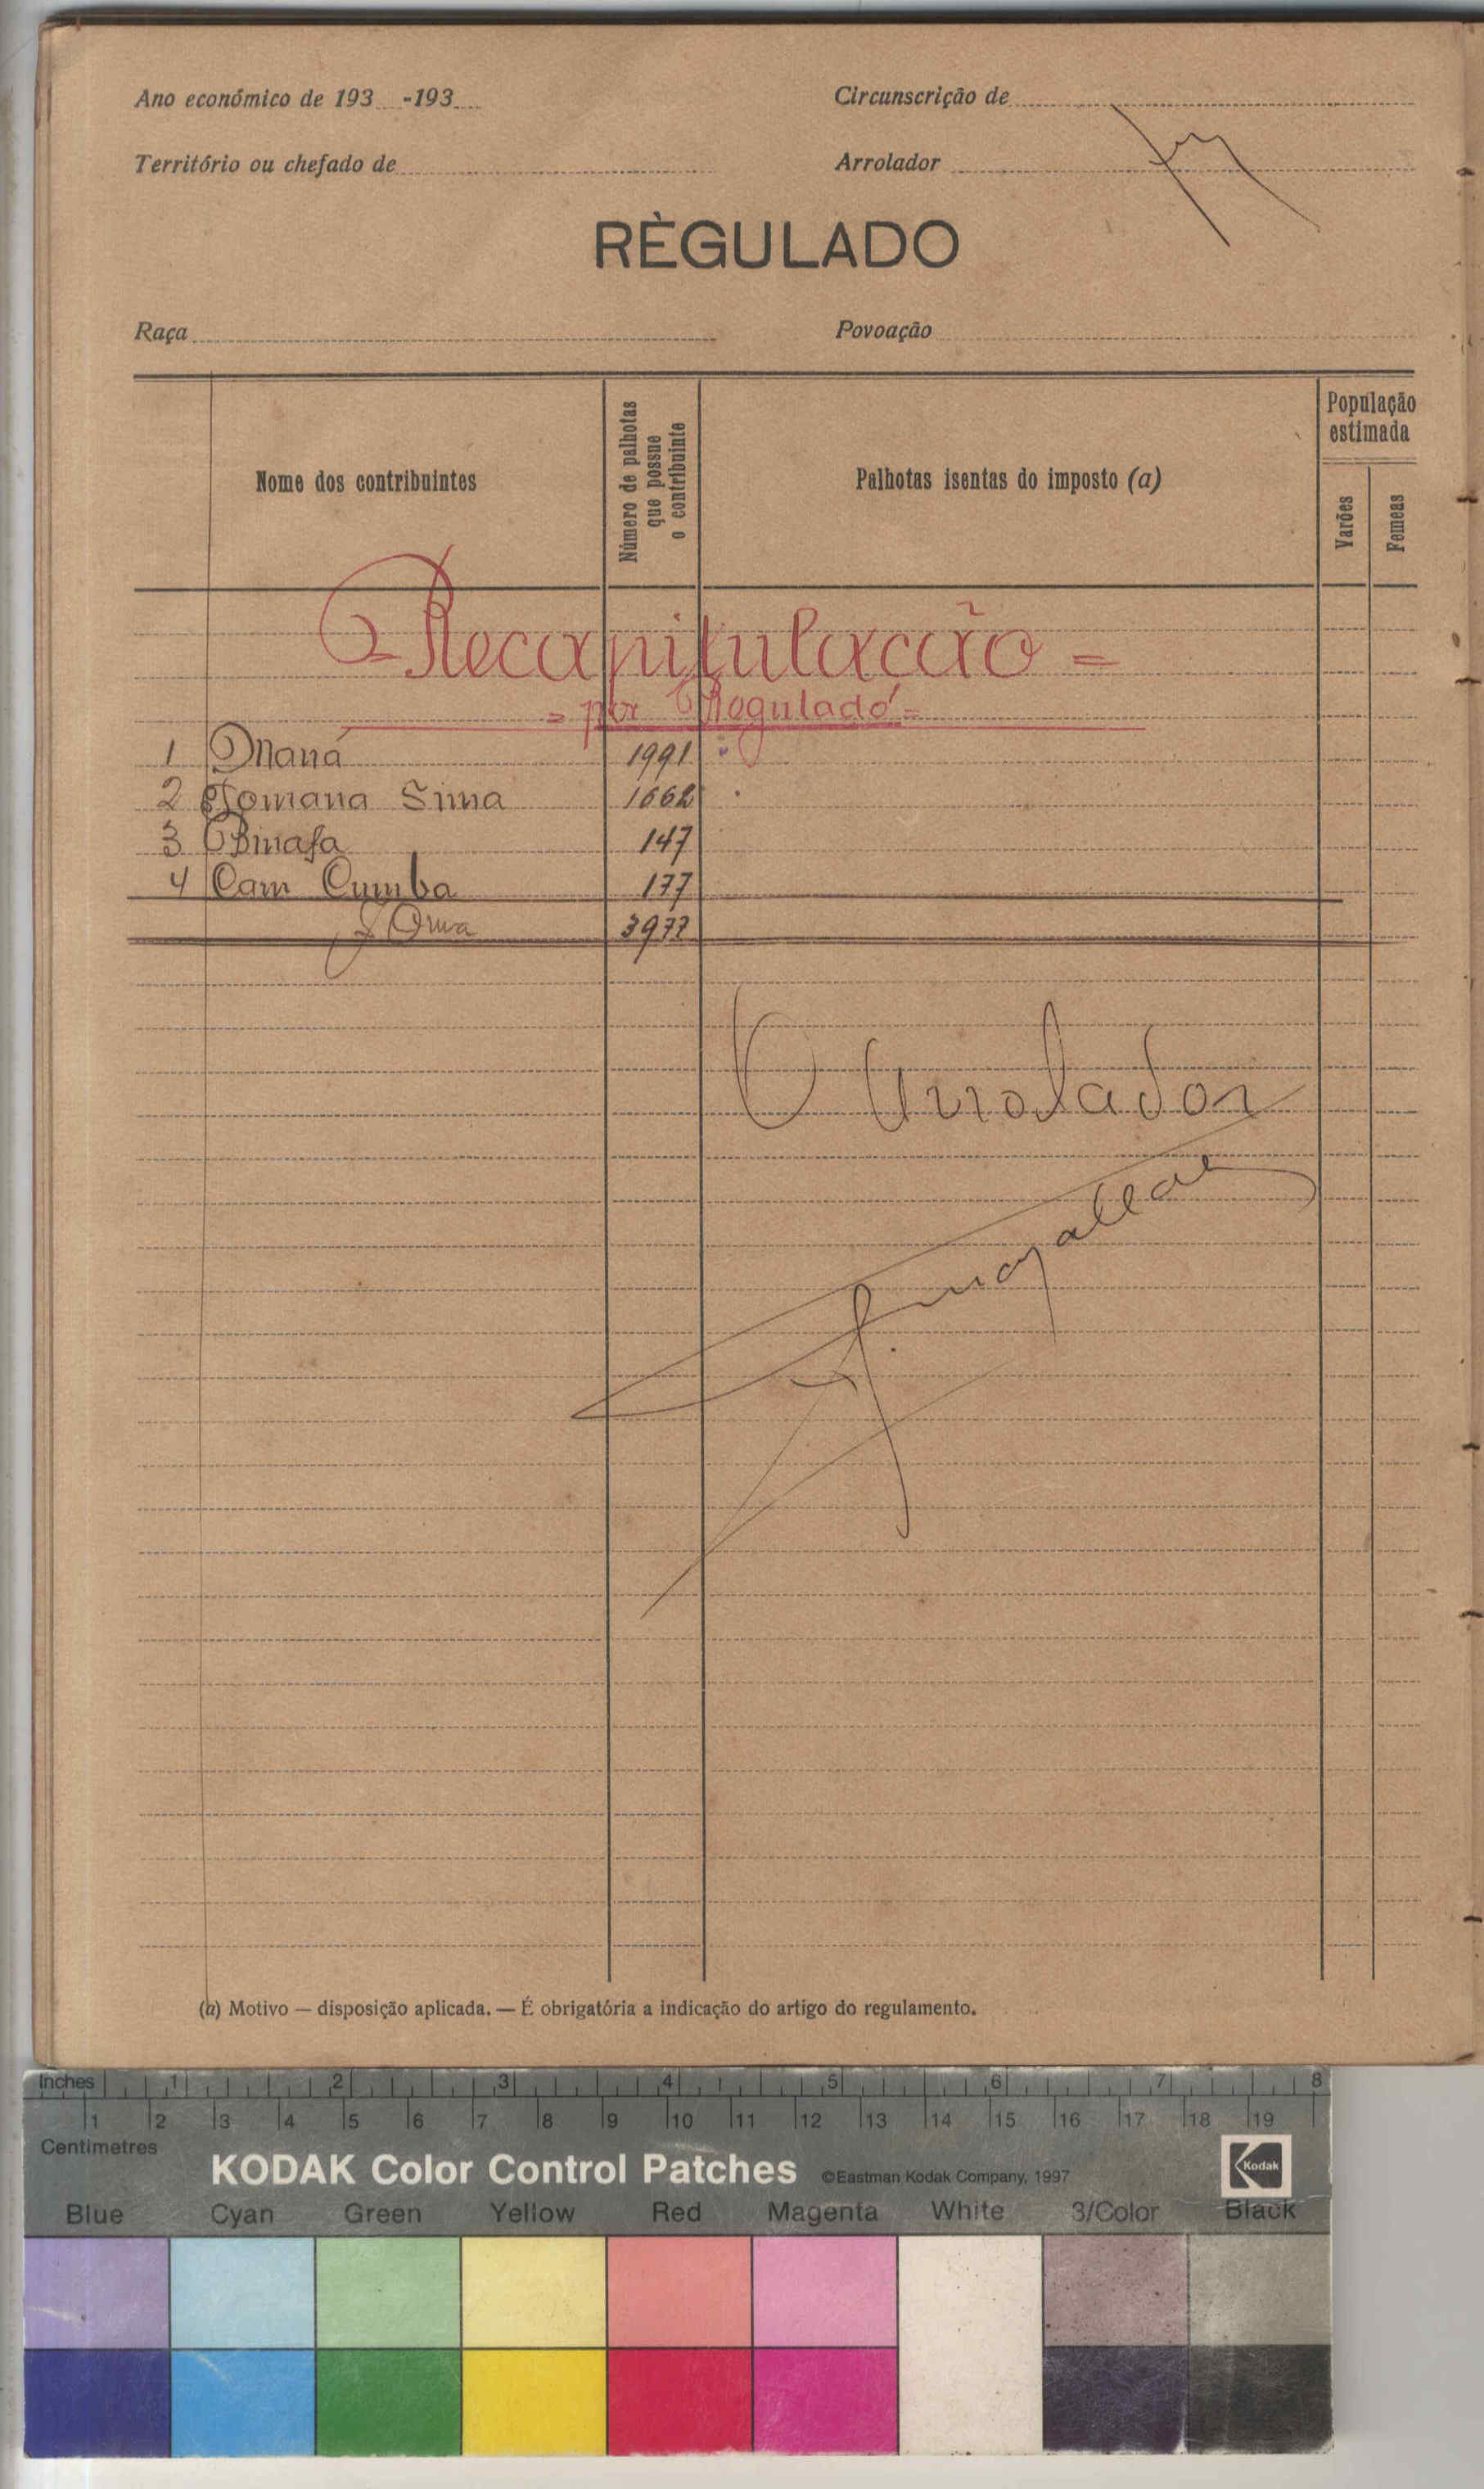 Ano económico de 193 -193
Circunscrição de
Território ou chefado de
Arrolador
RÈGULADO
Raça
Povoação
Nome dos contribuintes
Número de palhotas que possue o contribuinte
Palhotas isentas do imposto (a)
População estimada
Varões
Femeas
Recapitulacão =
= por Regulado =
1 Naná 1991
2 Jomana Sima 1662
3 Binafa 147
4 Cam Cumba 177
Soma 3977
O Arrolador
(a) Motivo — disposição aplicada. — É obrigatória a indicação do artigo do regulamento.
Inches 1 2 3 4 5 6 7 8
1 2 3 4 5 6 7 8 9 10 11 12 13 14 15 16 17 18 19
Centimetres
KODAK Color Control Patches ©Eastman Kodak Company, 1997 Kodak
Blue Cyan Green Yellow Red Magenta White 3/Color Black